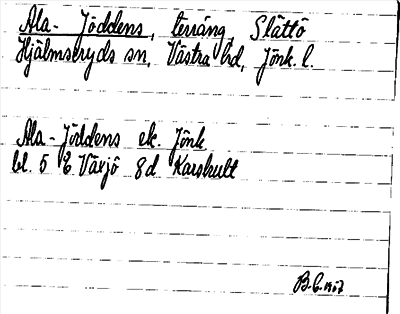 Ala-Jöddens, terräng, Slättö
Hjälmseryds sn, Västra hd, Jönk. l.
Ala-Jöddens ek. Jönk
bl. 5 E Växjö 8d Karshult
B.C. 1967